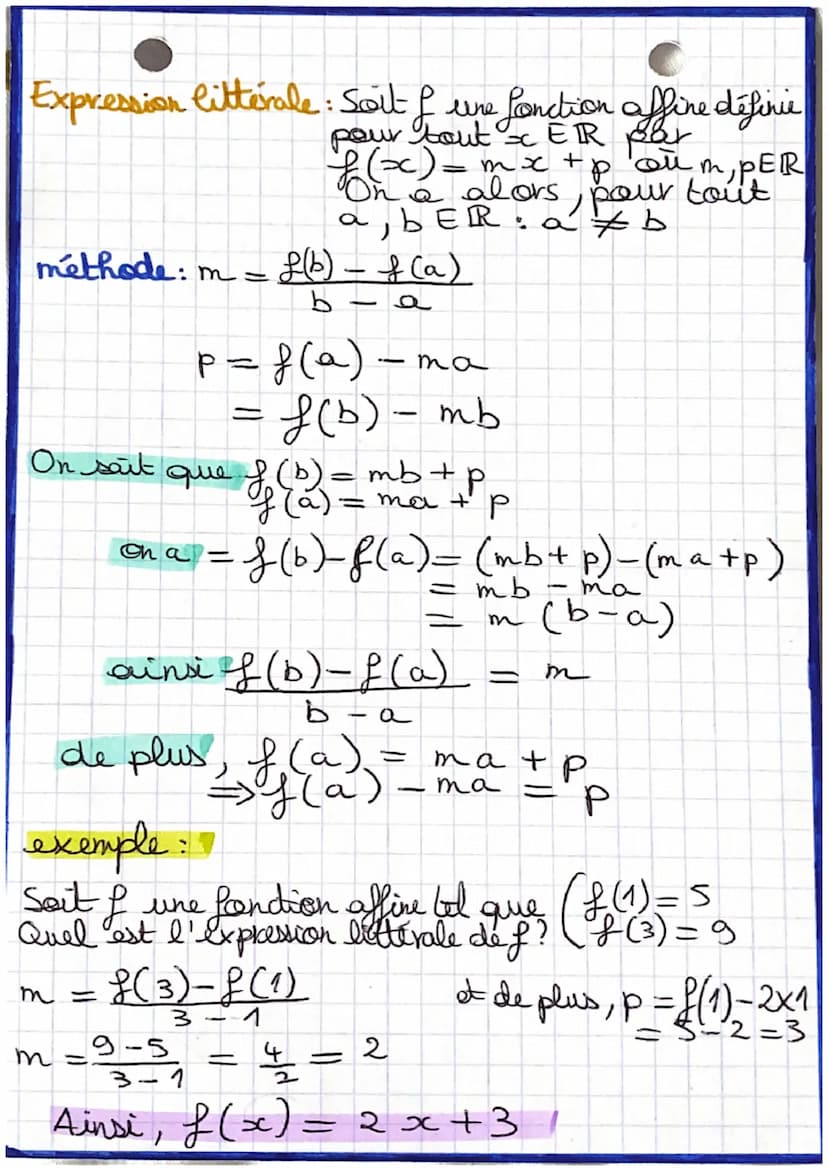 Expression littérale : Soit f une fonction affine définie
pour tout x ∈ ℝ par
f(x) = mx + p où m, p ∈ ℝ
On a alors, pour tout
a, b ∈ ℝ : a ≠ b
méthode : m = \frac{f(b) - f(a)}{b - a}
p = f(a) - ma
= f(b) - mb
On sait que f(b) = mb + p
f(a) = ma + p
on a = f(b) - f(a) = (mb + p) - (ma + p)
= mb - ma
= m (b - a)
ainsi \frac{f(b) - f(a)}{b - a} = m
de plus, f(a) = ma + p
⇒ f(a) - ma = p
exemple :
Soit f une fonction affine tel que ( f(1) = 5
Quel est l'expression littérale de f ? ( f(3) = 9
m = \frac{f(3) - f(1)}{3 - 1}
et de plus, p = f(1) - 2x1
= 5 - 2 = 3
m = \frac{9 - 5}{3 - 1} = \frac{4}{2} = 2
Ainsi, f(x) = 2x + 3